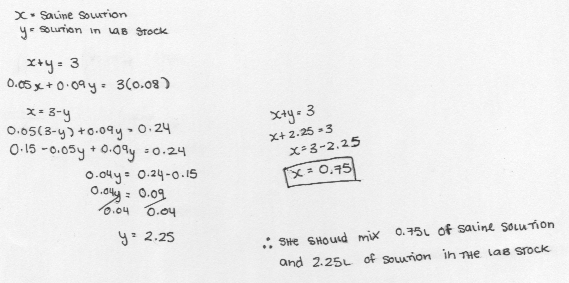 x = Saline Solution
y = Solution in LAB Stock
x+y = 3
0.05x + 0.09y = 3(0.08)
x = 3-y
0.05(3-y) + 0.09y = 0.24
0.15 - 0.05y + 0.09y = 0.24
0.04y = 0.24-0.15
0.04y = 0.09
0.04 0.04
y = 2.25
x+y = 3
x+2.25 = 3
x = 3-2.25
x = 0.75
∴ SHE SHOULD MIX 0.75L OF SALINE SOLUTION
and 2.25L OF SOLUTION IN THE LAB STOCK